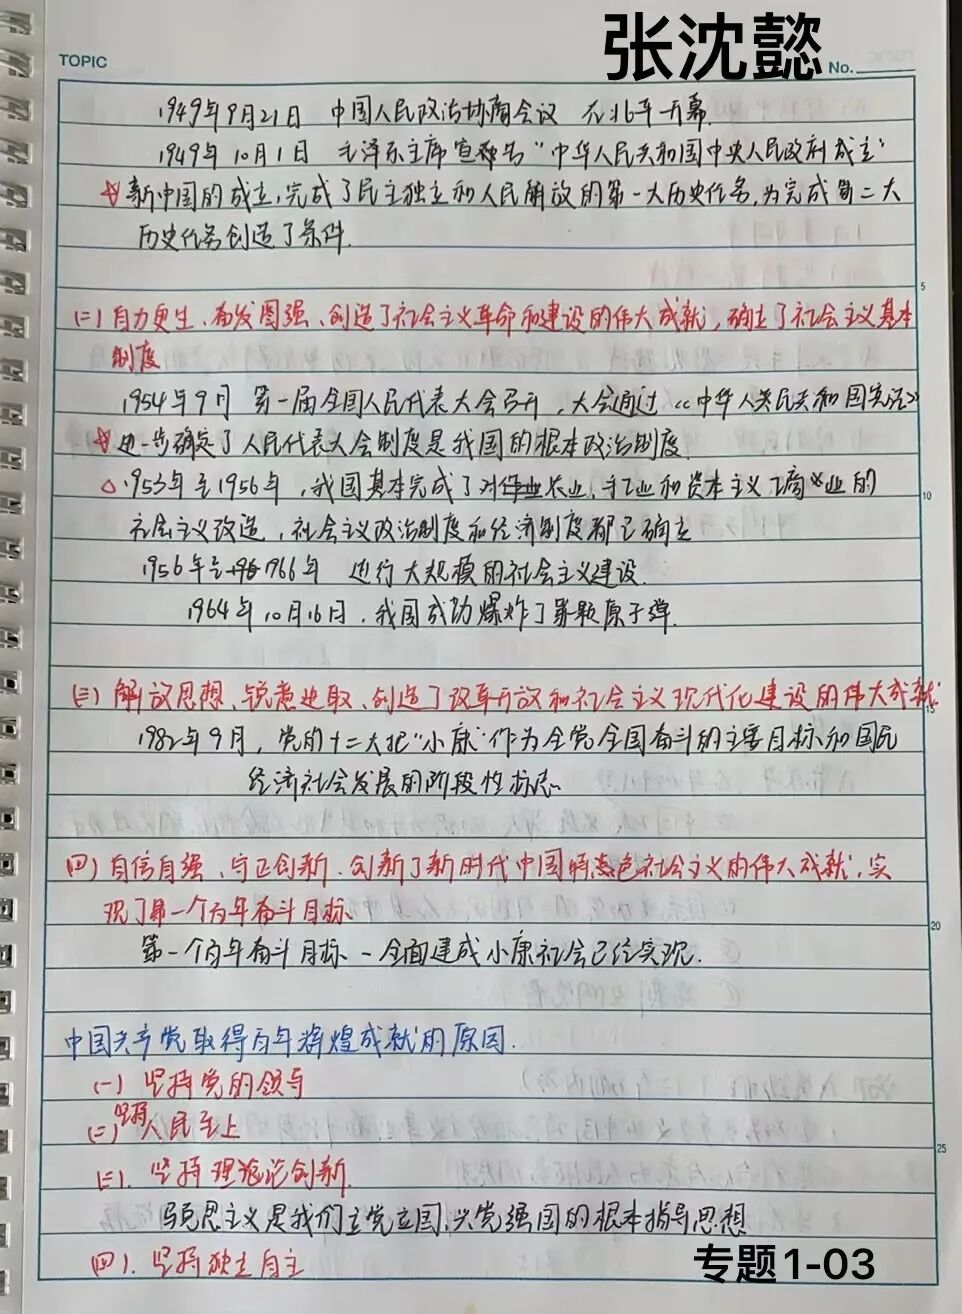 张沈懿
TOPIC
No.
1949年9月21日 中国人民政治协商会议 在北平开幕.
1949年10月1日 毛泽东主席宣称告"中华人民共和国中央人民政府成立"
☆新中国的成立,完成了民主独立和人民解放的第一大历史任务,为完成第二大
历史任务创造了条件.
(二)自力更生、奋发图强、创造了社会主义革命和建设的伟大成就,确立了社会主义基本
制度
1954年9月 第一届全国人民代表大会召开,大会通过《中华人民共和国宪法》
☆进一步确定了人民代表大会制度是我国的根本政治制度.
△1953年至1956年,我国基本完成了对农业,手工业和资本主义工商业的
社会主义改造,社会主义政治制度和经济制度都已确立
1956年至1966年 进行大规模的社会主义建设.
1964年10月16日,我国成功爆炸了第一颗原子弹.
(三)解放思想、锐意进取、创造了改革开放和社会主义现代化建设的伟大成就
1982年9月,党的十二大把"小康"作为全党全国奋斗的主要目标和国民
经济社会发展的阶段性标志
(四)自信自强、守正创新、创新了新时代中国特色社会主义的伟大成就,实
现了第一个百年奋斗目标
第一个百年奋斗目标-全面建成小康社会已经实现.
中国共产党取得百年辉煌成就的原因.
(一)坚持党的领导
(二)坚持人民至上
(三).坚持理论创新.
马克思主义是我们立党立国,兴党强国的根本指导思想
(四).坚持独立自主
专题1-03
5
10
15
20
25